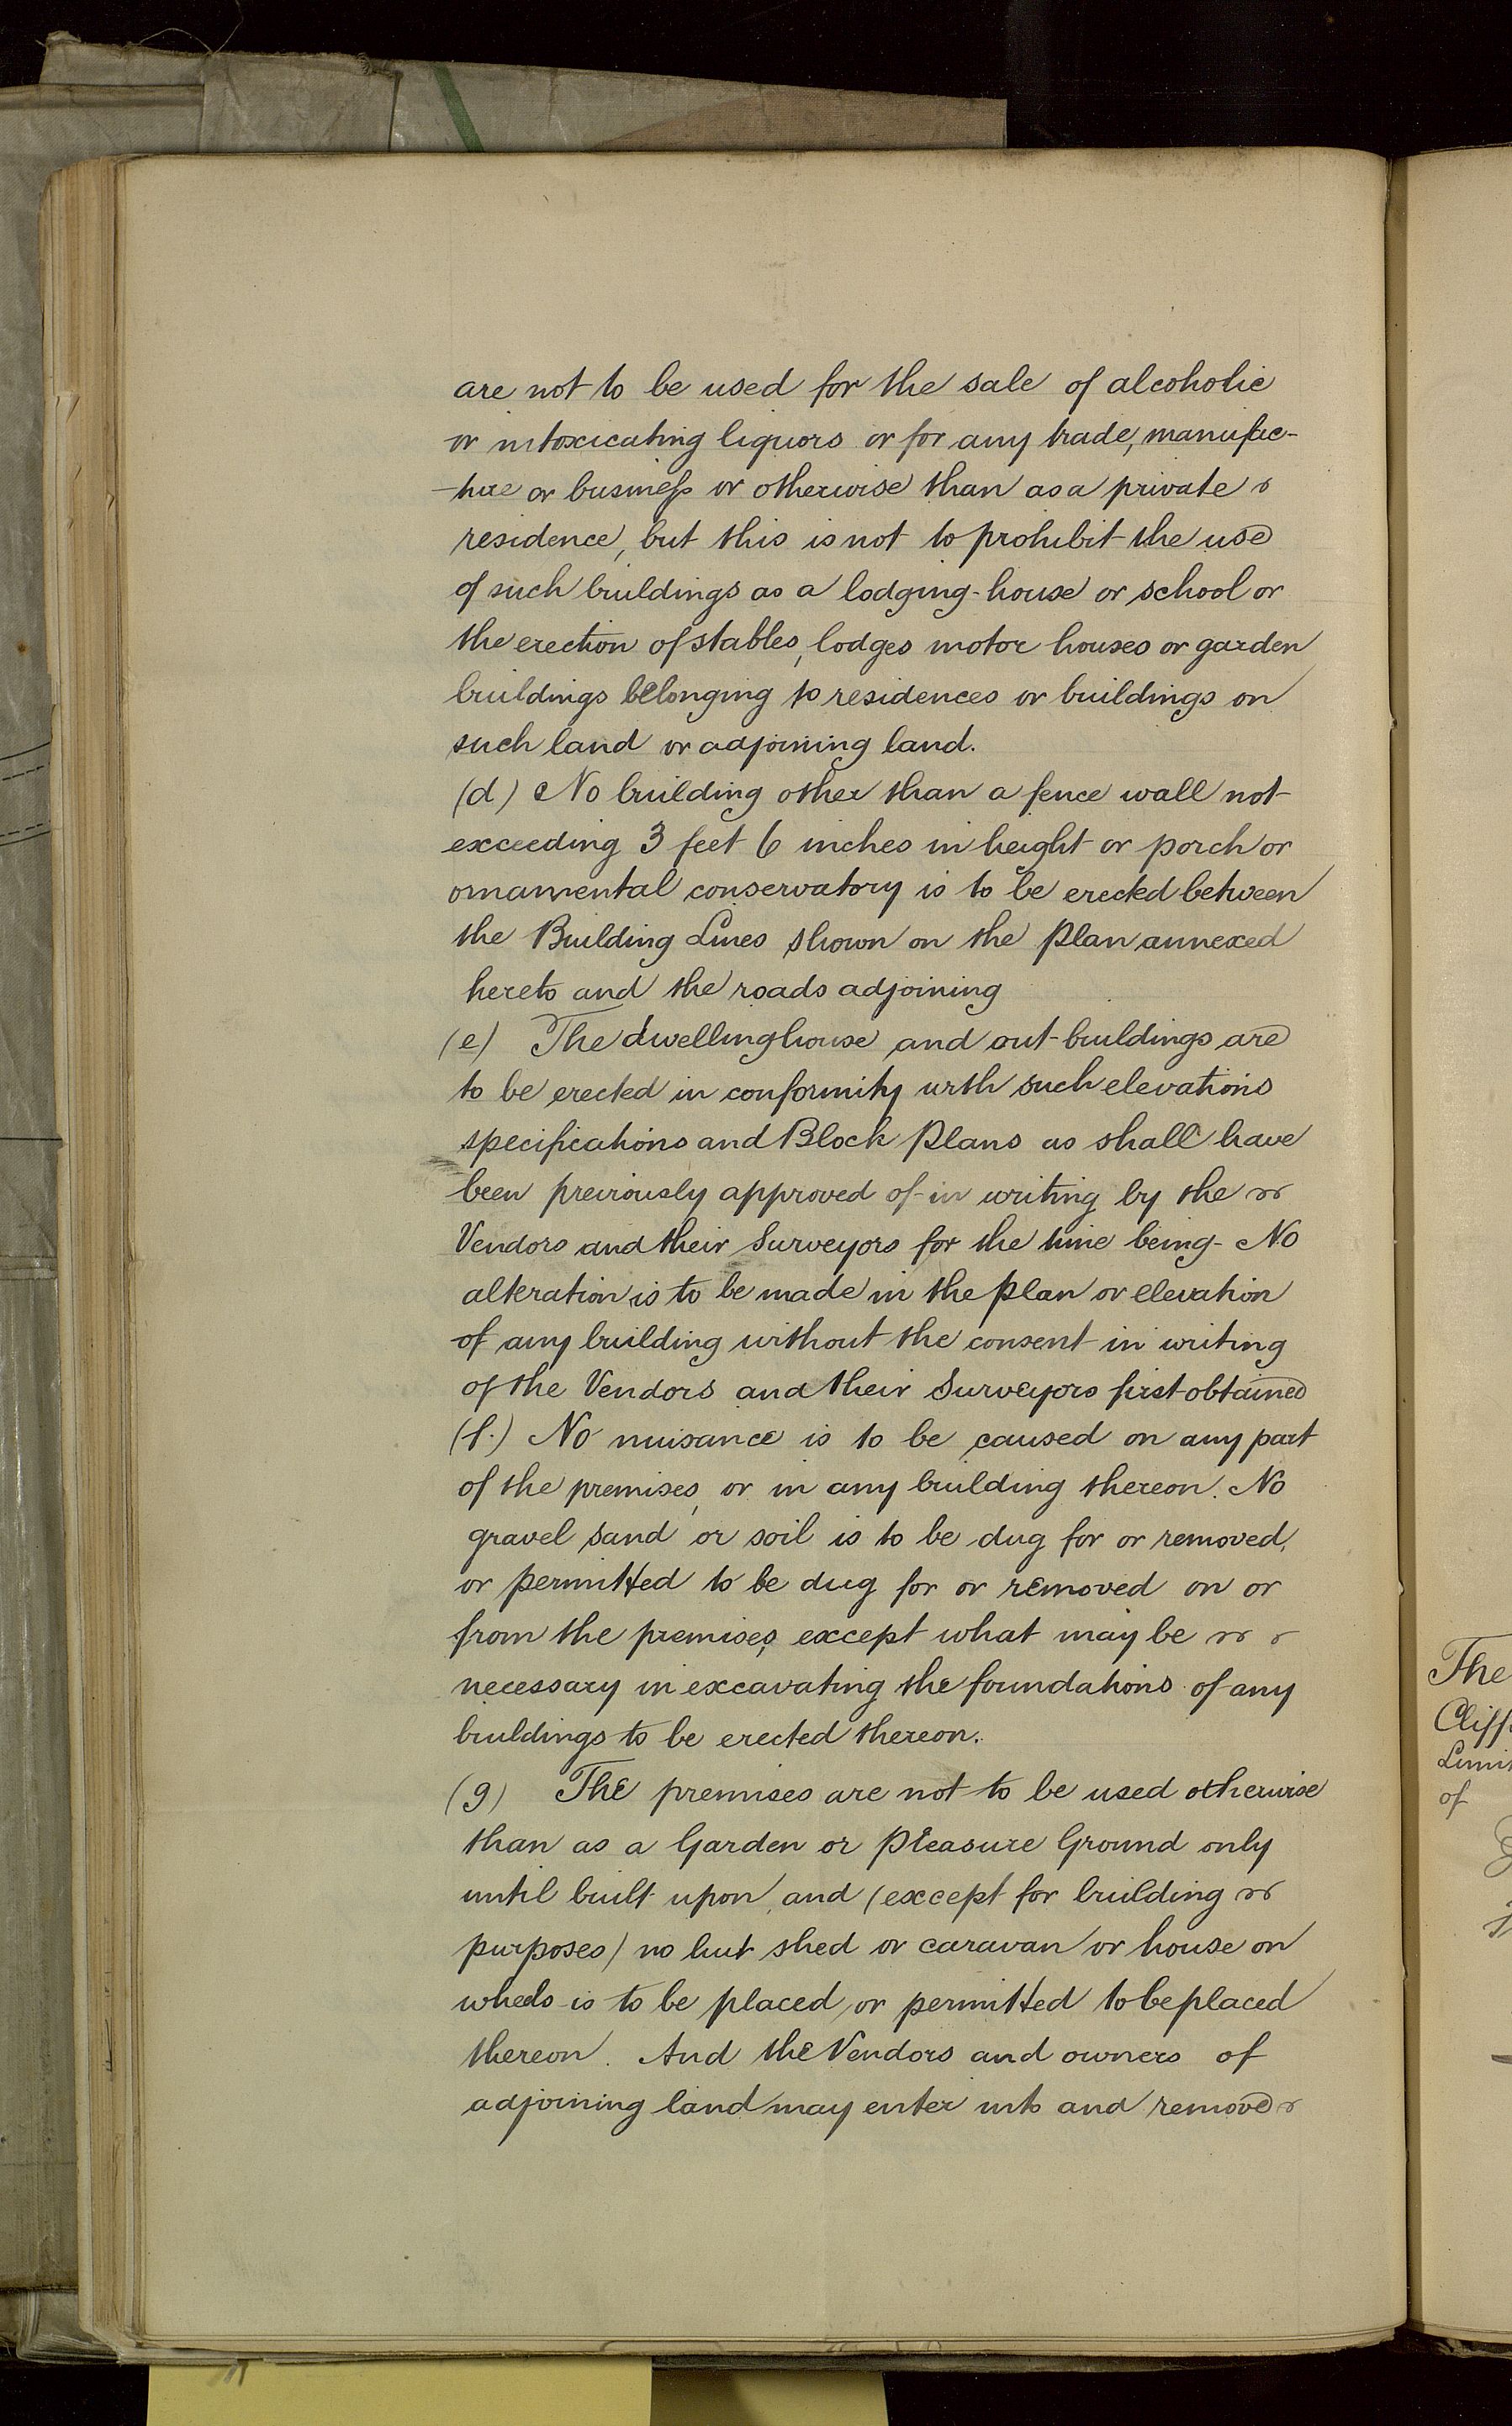 are not to be used for the sale of alcoholic
or intoxicating liquors or for any trade, manufac-
-ture or business or otherwise than as a private
residence, but this is not to prohibit the use
of such buildings as a lodging-house or school or
the erection of stables, lodges motor houses or garden
buildings belonging to residences or buildings on
such land or adjoining land.
(d) No building other than a fence wall not
exceeding 3 feet 6 inches in height or porch or
ornamental conservatory is to be erected between
the Building Lines shown on the Plan annexed
hereto and the roads adjoining
(e) The dwellinghouse and out-buildings are
to be erected in conformity with such elevations
specifications and Block Plans as shall have
been previously approved of in writing by the
Vendors and their Surveyors for the time being - No
alteration is to be made in the plan or elevation
of any building without the consent in writing
of the Vendors and their Surveyors first obtained
(f.) No nuisance is to be caused on any part
of the premises, or in any building thereon. No
gravel sand or soil is to be dug for or removed,
or permitted to be dug for or removed on or
from the premises, except what may be
necessary in excavating the foundations of any
buildings to be erected thereon.
(g) The premises are not to be used otherwise
than as a Garden or Pleasure Ground only
until built upon, and (except for building
purposes) no hut shed or caravan or house on
wheels is to be placed, or permitted to be placed
thereon. And the Vendors and owners of
adjoining land may enter into and remove
The
Cliff
Limi
of